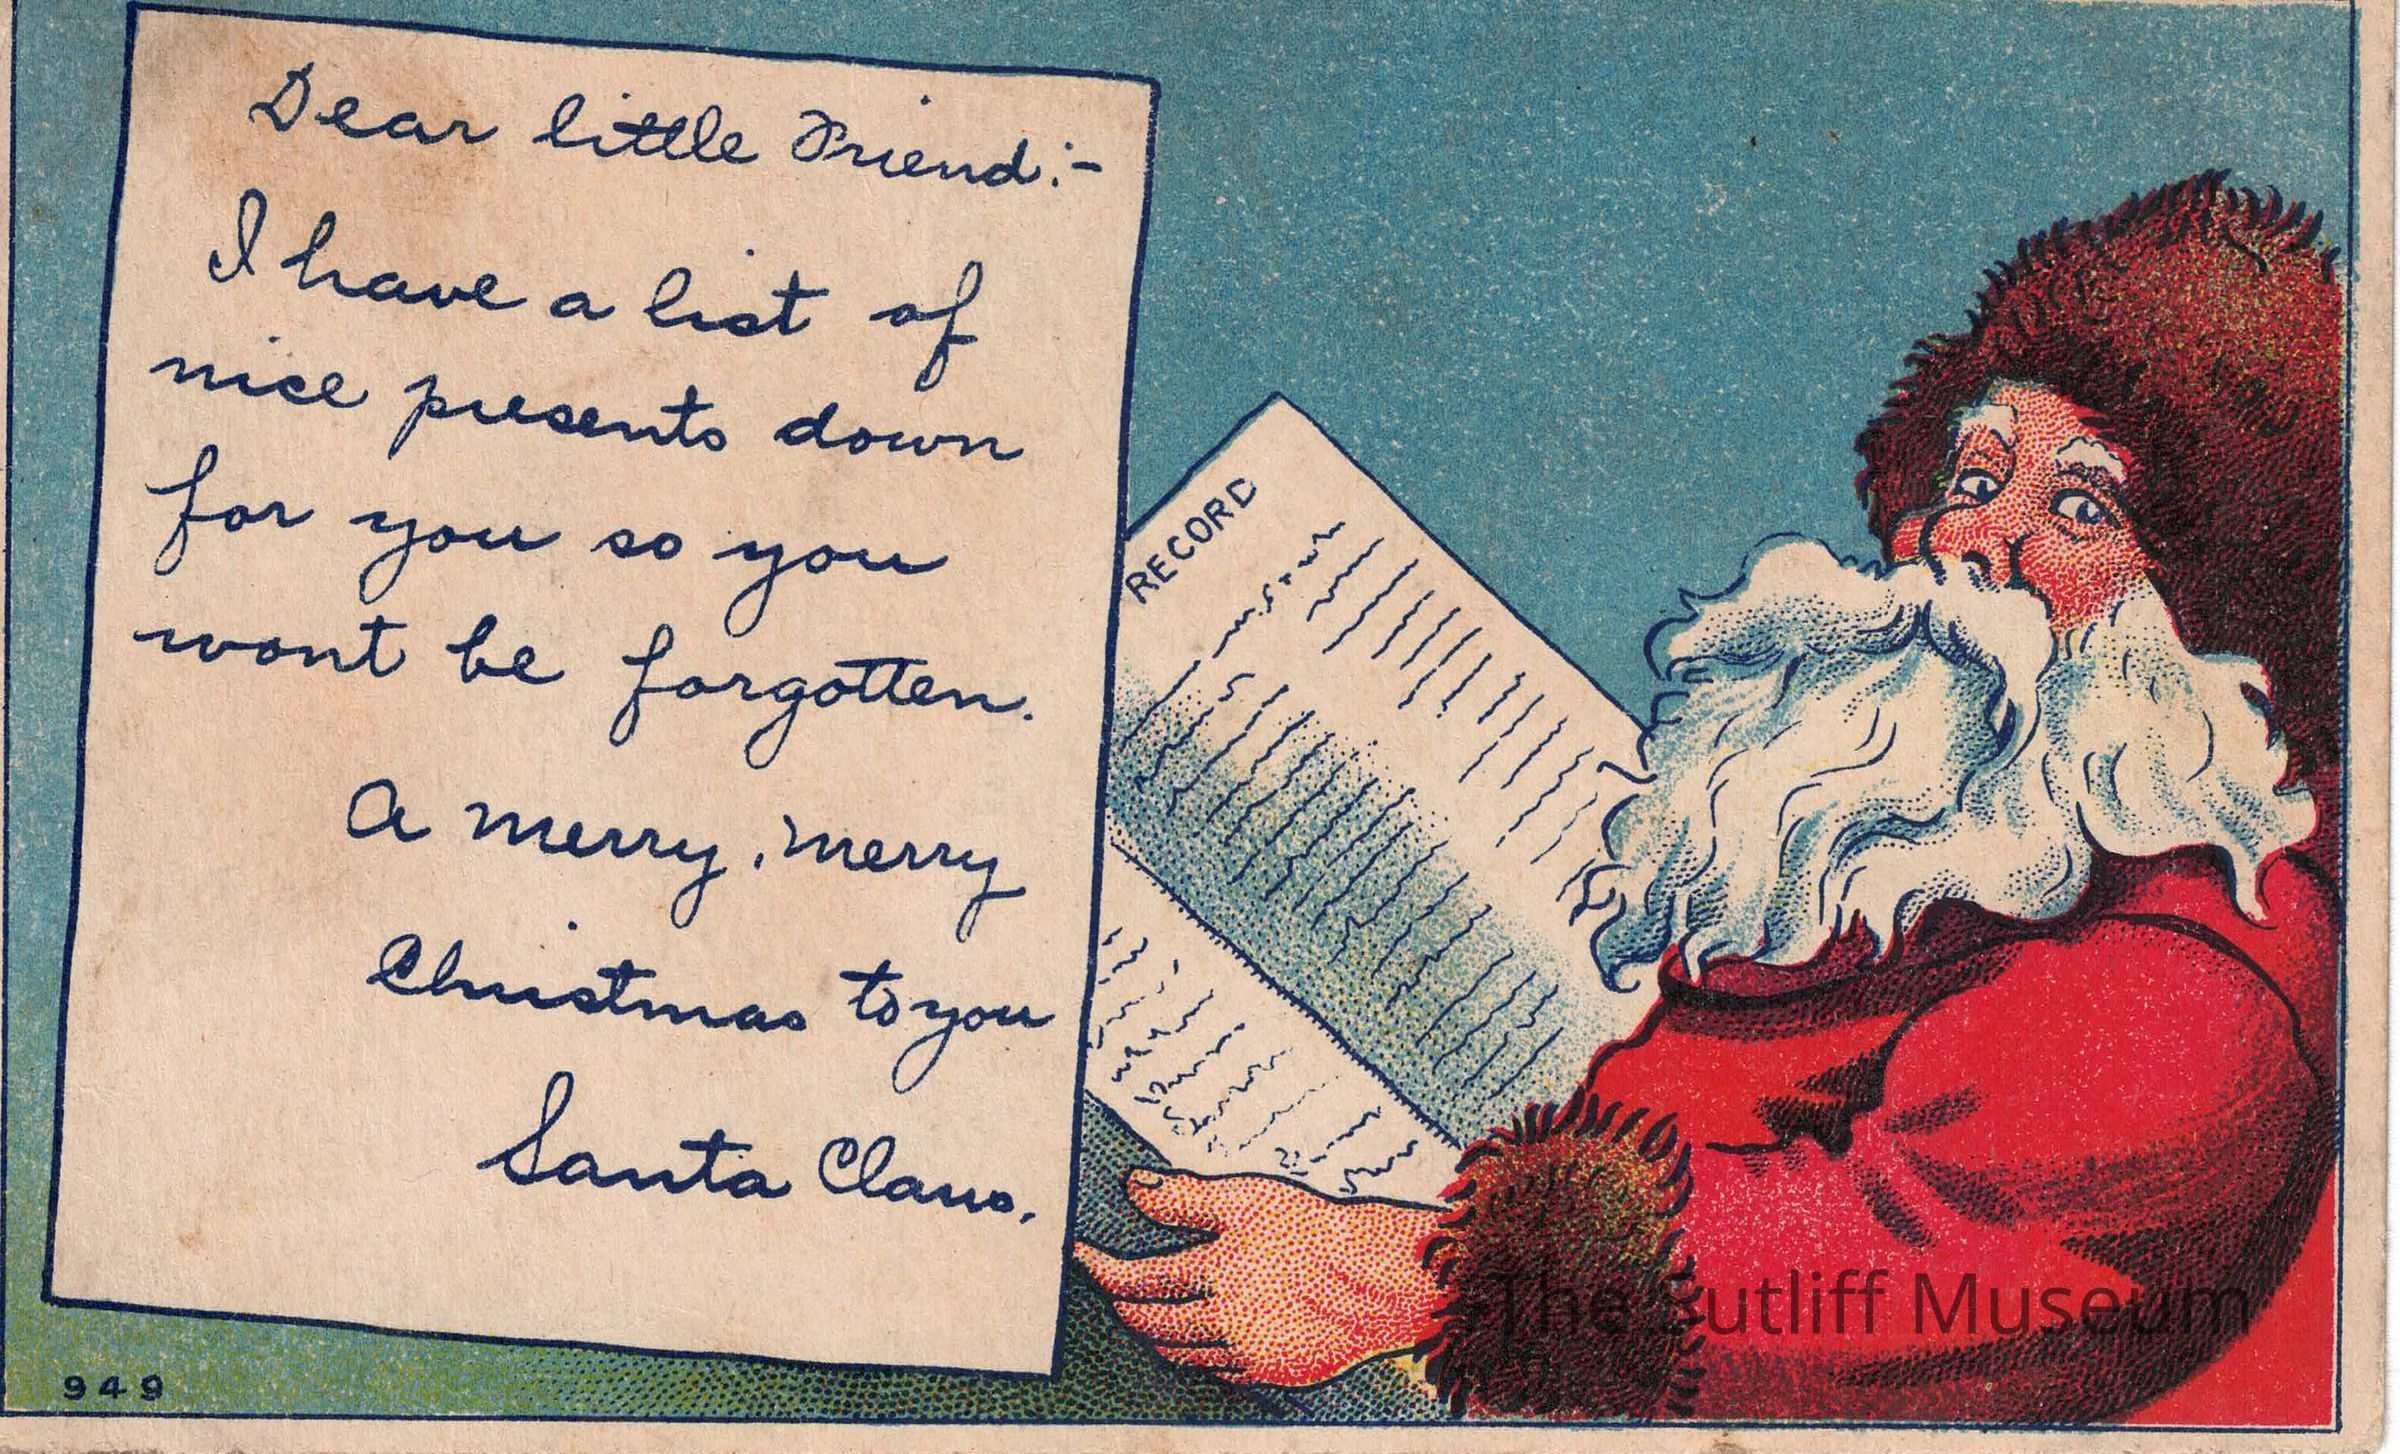 Dear little Friend:-
I have a list of
nice presents down
for you so you
wont be forgotten.
A merry, merry
Christmas to you
Santa Claus.
RECORD
The Sutliff Museum
949